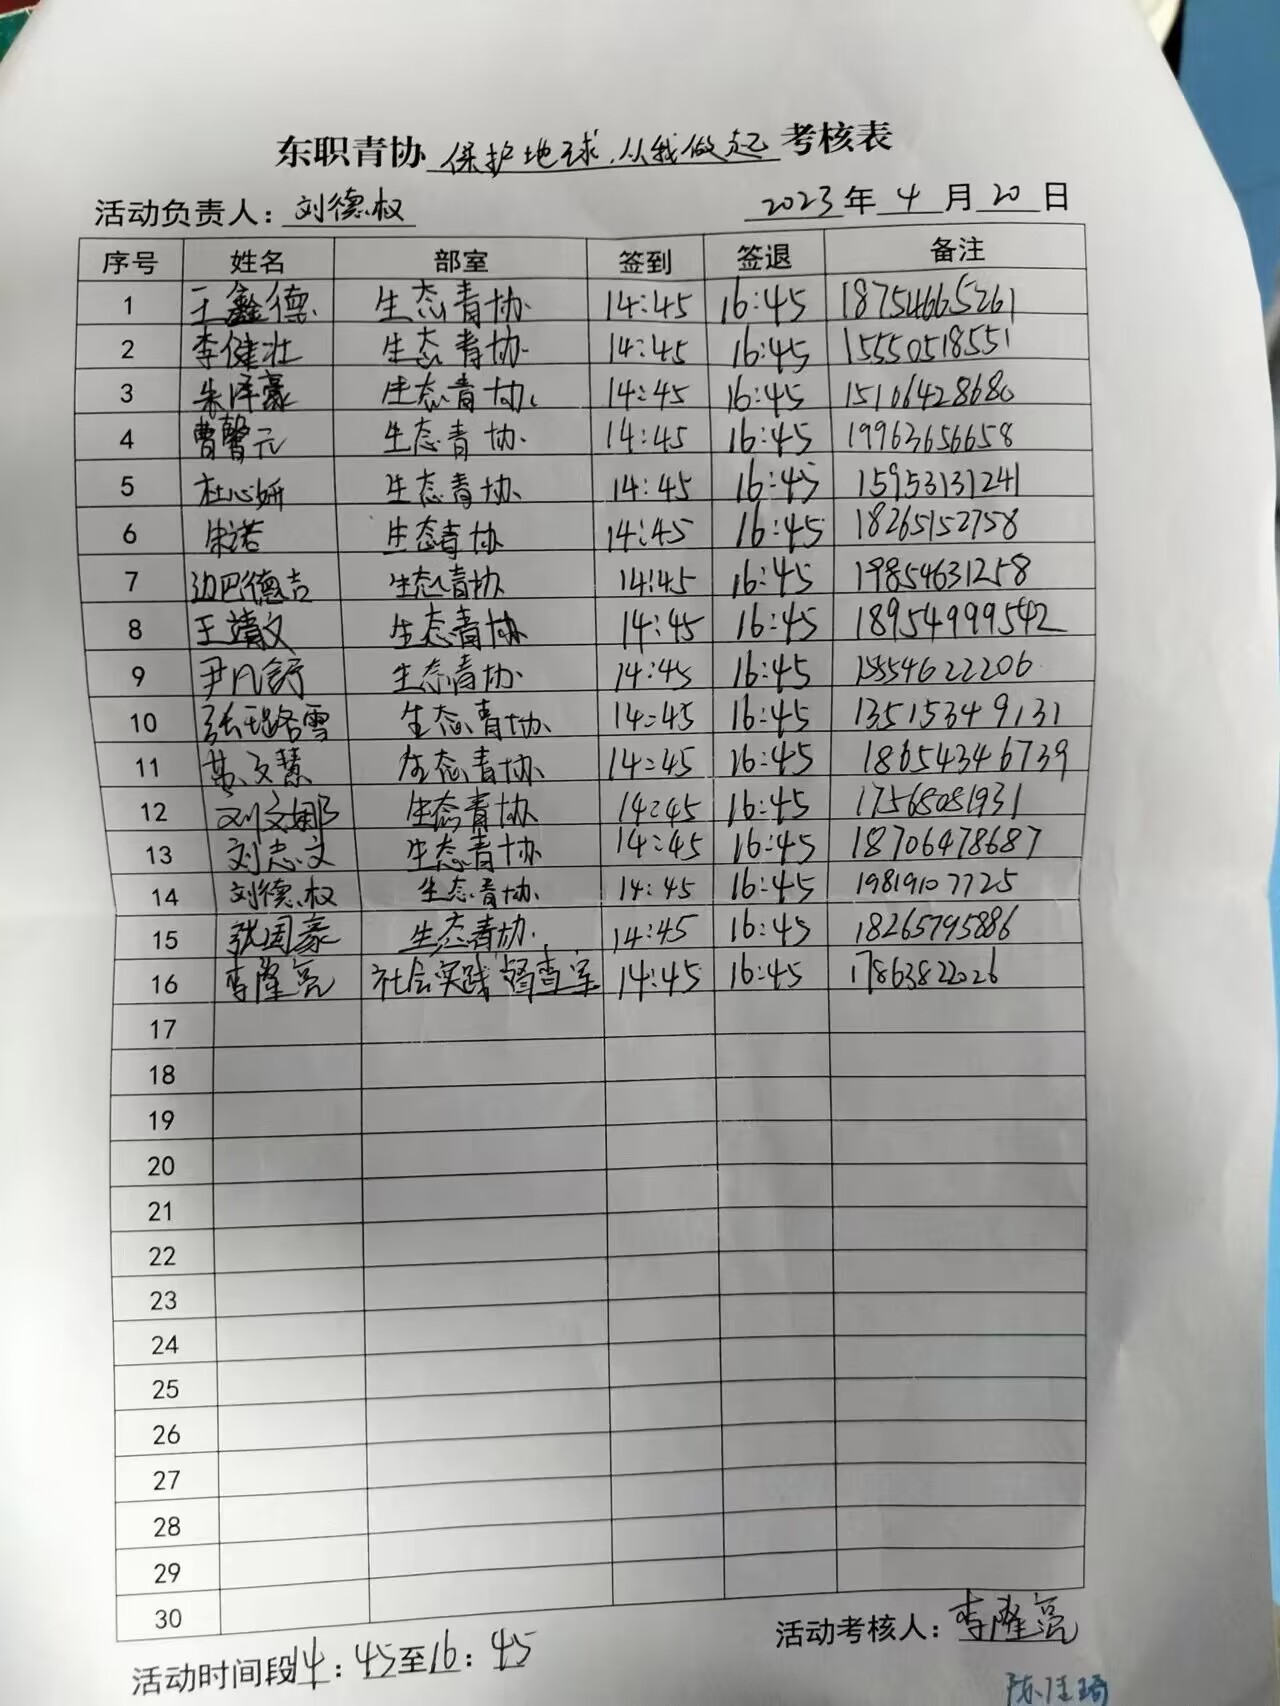 东职青协 保护地球,从我做起 考核表
活动负责人: 刘德权 2023年4月20日
序号 姓名 部室 签到 签退 备注
1 王鑫德 生态青协 14:45 16:45 18754665261
2 李健壮 生态青协 14:45 16:45 15550518551
3 朱泽豪 生态青协 14:45 16:45 15106428680
4 曹馨元 生态青协 14:45 16:45 19963656658
5 杜心妍 生态青协 14:45 16:45 15953131241
6 朱诺 生态青协 14:45 16:45 18265152758
7 边巴德吉 生态青协 14:45 16:45 19854631258
8 王靖文 生态青协 14:45 16:45 18954999542
9 尹凡舒 生态青协 14:45 16:45 15554622206
10 张璐雪 生态青协 14:45 16:45 13515349131
11 文慧 生态青协 14:45 16:45 18654346739
12 刘文娜 生态青协 14:45 16:45 17568081931
13 刘志文 生态青协 14:45 16:45 18706478687
14 刘德权 生态青协 14:45 16:45 19819107725
15 张国豪 生态青协 14:45 16:45 18265795886
16 李隆亮 社会实践督查室 14:45 16:45 17863822026
17
18
19
20
21
22
23
24
25
26
27
28
29
30
活动时间段14:45至16:45 活动考核人: 李隆亮
陈佳琦